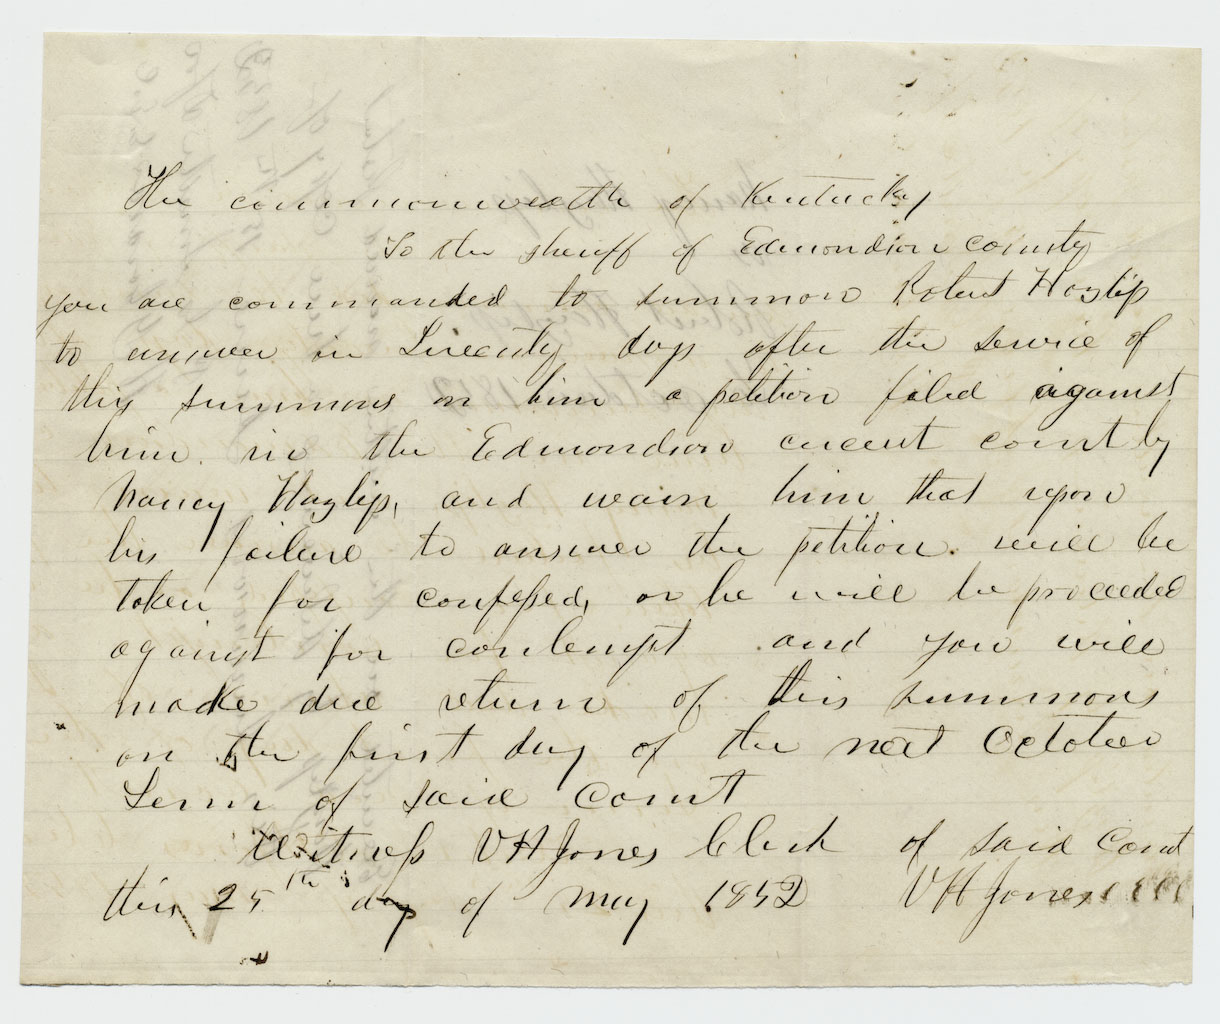 The commonweath of Kentucky
To the sheriff of Edmondson county
you are commanded to summon Robert Hazlip
to answer in Twenty days after the service of
this summons on him a petition filed against
him in the Edmondson circuit court by
Nancy Hazlip, and warn him that upon
his failure to answer the petition will be
taken for confessed, or he will be proceeded
against for contempt and you will
make due return of this summons
on the first day of the next October
Term of said Court
Witness V H Jones Clerk of said Court
this 25th day of May 1852 V H Jones